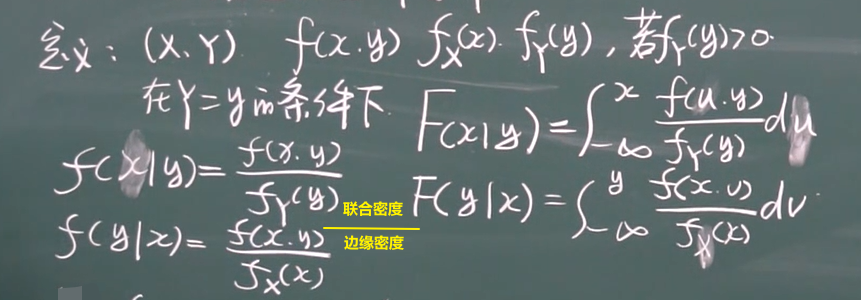 定义：(X,Y) f(x,y) f_X(x). f_Y(y), 若f_Y(y)>0.
在Y=y的条件下 F(x|y)=∫_{-∞}^{x} \frac{f(u,y)}{f_Y(y)}du
f(x|y)=\frac{f(x,y)}{f_Y(y)}
F(y|x)=∫_{-∞}^{y} \frac{f(x,v)}{f_X(x)}dv.
f(y|x)=\frac{f(x,y)}{f_X(x)}
联合密度
边缘密度